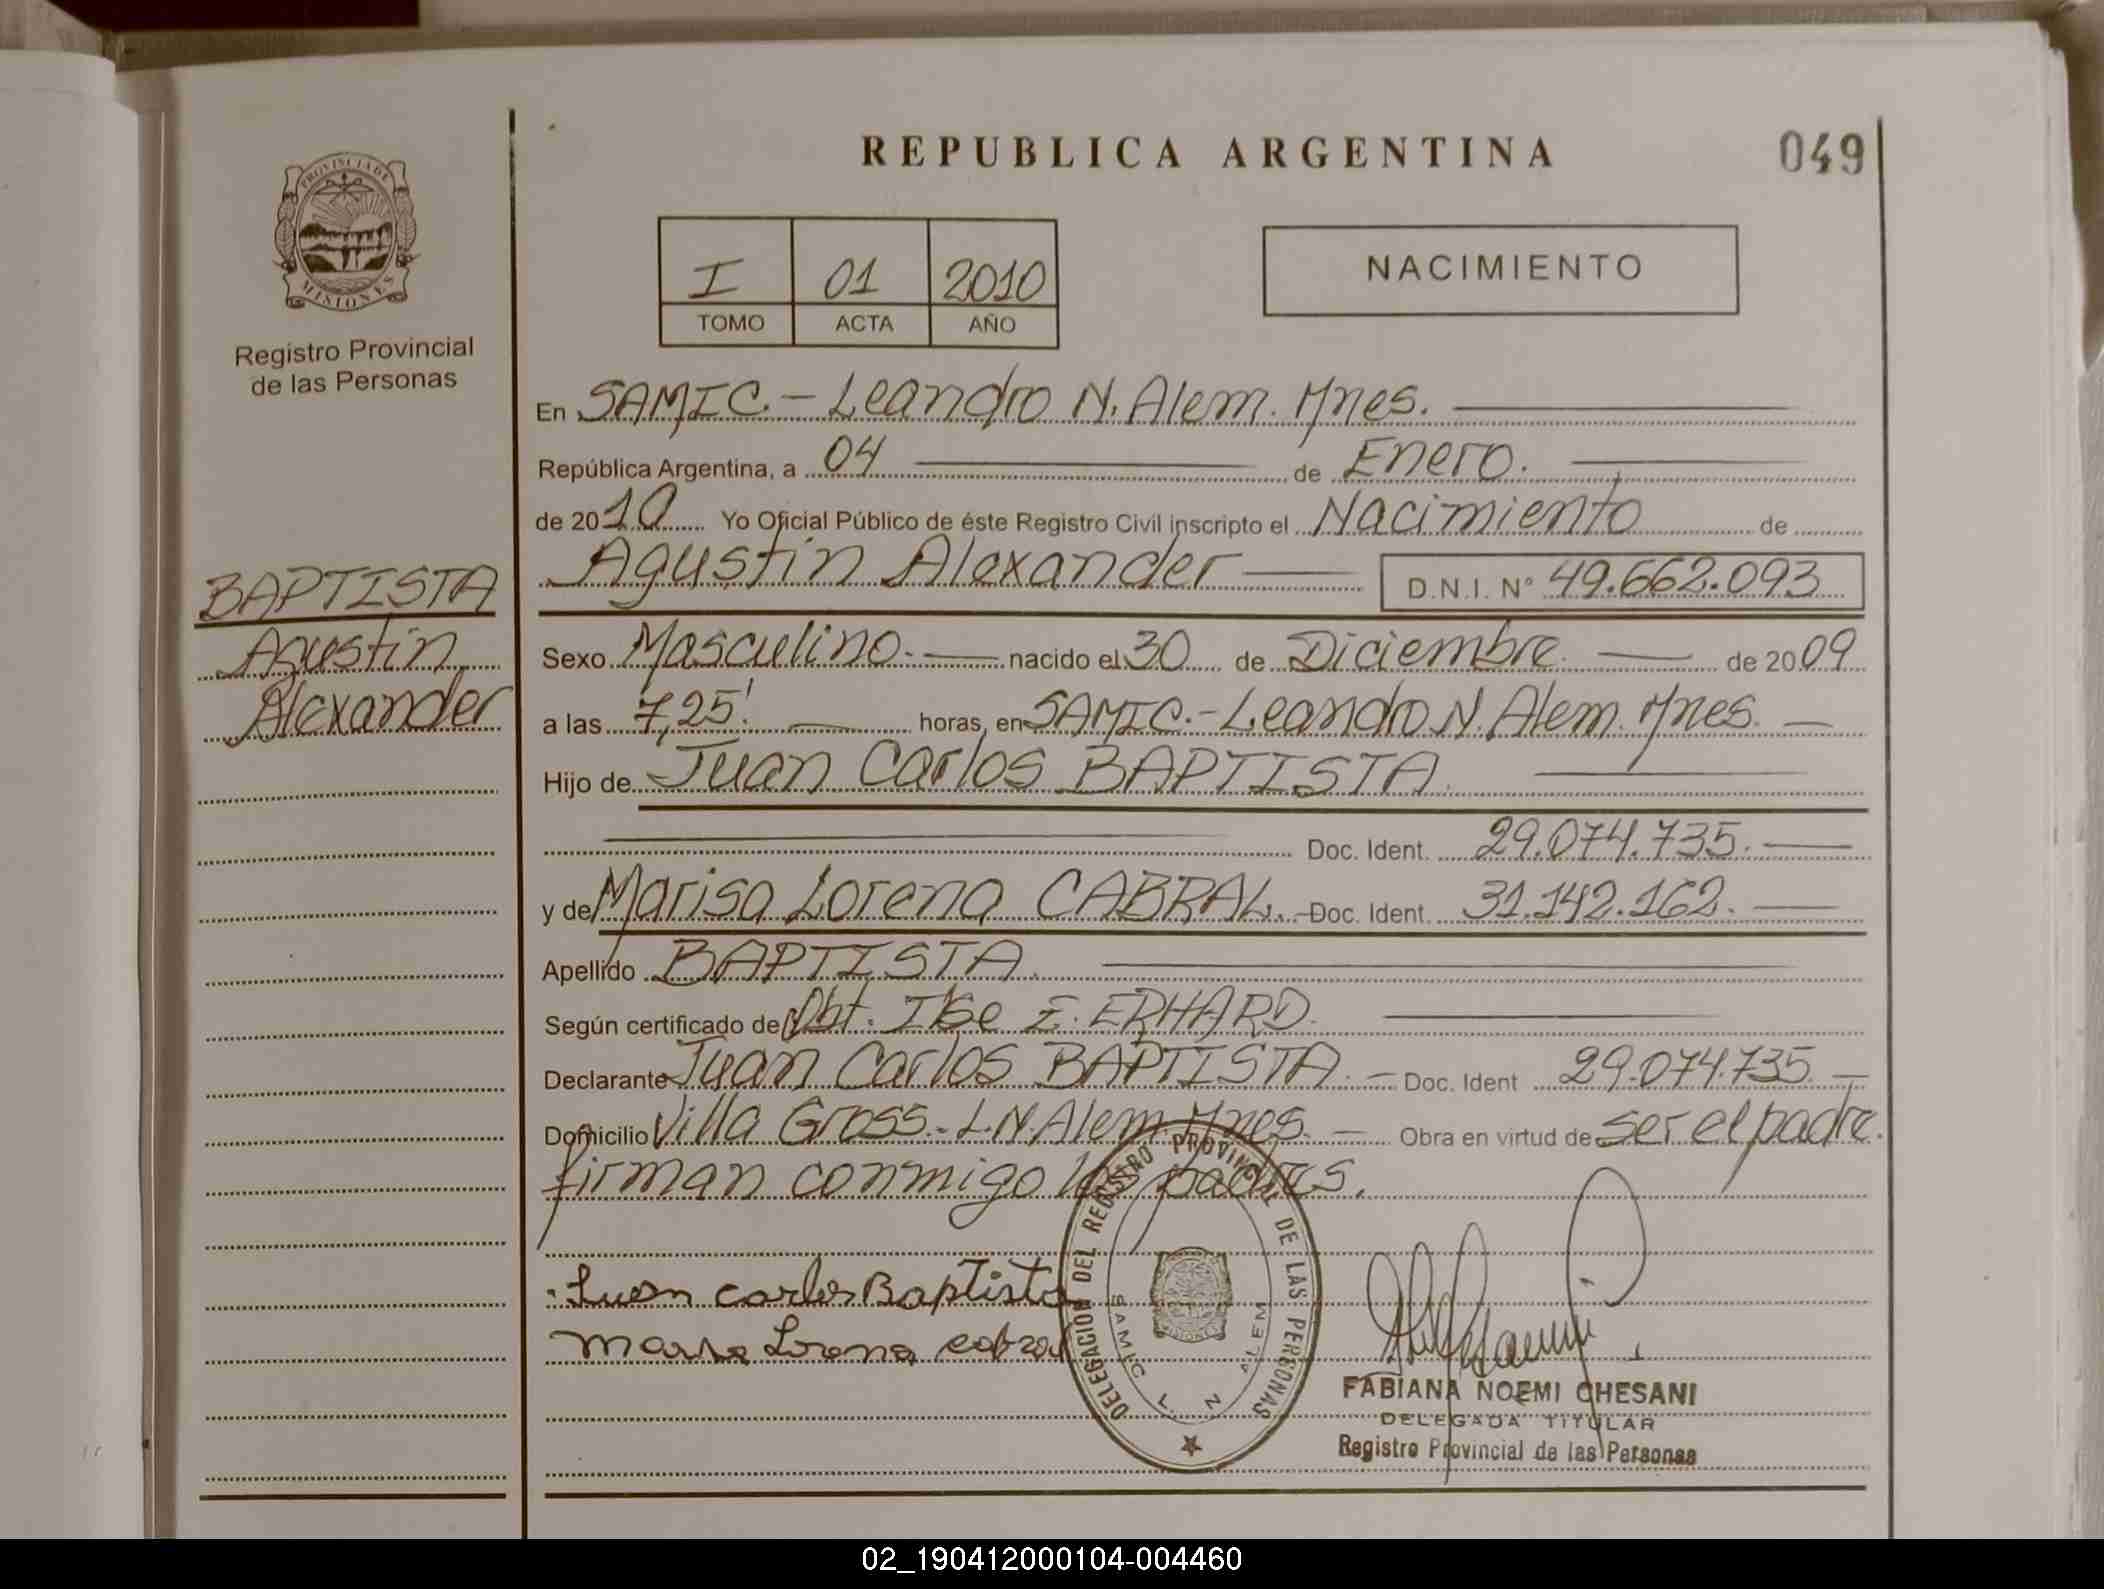 REPUBLICA ARGENTINA
049
PROVINCIA DE
MISIONES
Registro Provincial
de las Personas
I 01 2010
TOMO ACTA AÑO
NACIMIENTO
En SAMIC.- Leandro N. Alem. Mnes.
República Argentina, a 04 de Enero.
de 2010 Yo Oficial Público de éste Registro Civil inscripto el Nacimiento de
Agustin Alexander D.N.I. N° 49.662.093
BAPTISTA
Agustin
Alexander
Sexo Masculino. nacido el 30 de Diciembre. de 2009
a las 7,25' horas, en SAMIC.- Leandro N. Alem. Mnes.
Hijo de Juan Carlos BAPTISTA.
Doc. Ident. 29.074.735.
y de Marisa Lorena CABRAL. Doc. Ident. 31.142.162.
Apellido BAPTISTA.
Según certificado de Obt. Ilse E. ERHARD.
Declarante Juan Carlos BAPTISTA. Doc. Ident 29.074.735.
Domicilio Villa Gross.- L.N. Alem Mnes. Obra en virtud de ser el padre.
firman conmigo los padres.
Juan Carlos Baptista
Lorena cabral
DELEGACION DEL REGISTRO PROVINCIAL DE LAS PERSONAS
SAMIC L. N. ALEM
MISIONES
FABIANA NOEMI CHESANI
DELEGADA TITULAR
Registro Provincial de las Personas
02_190412000104-004460